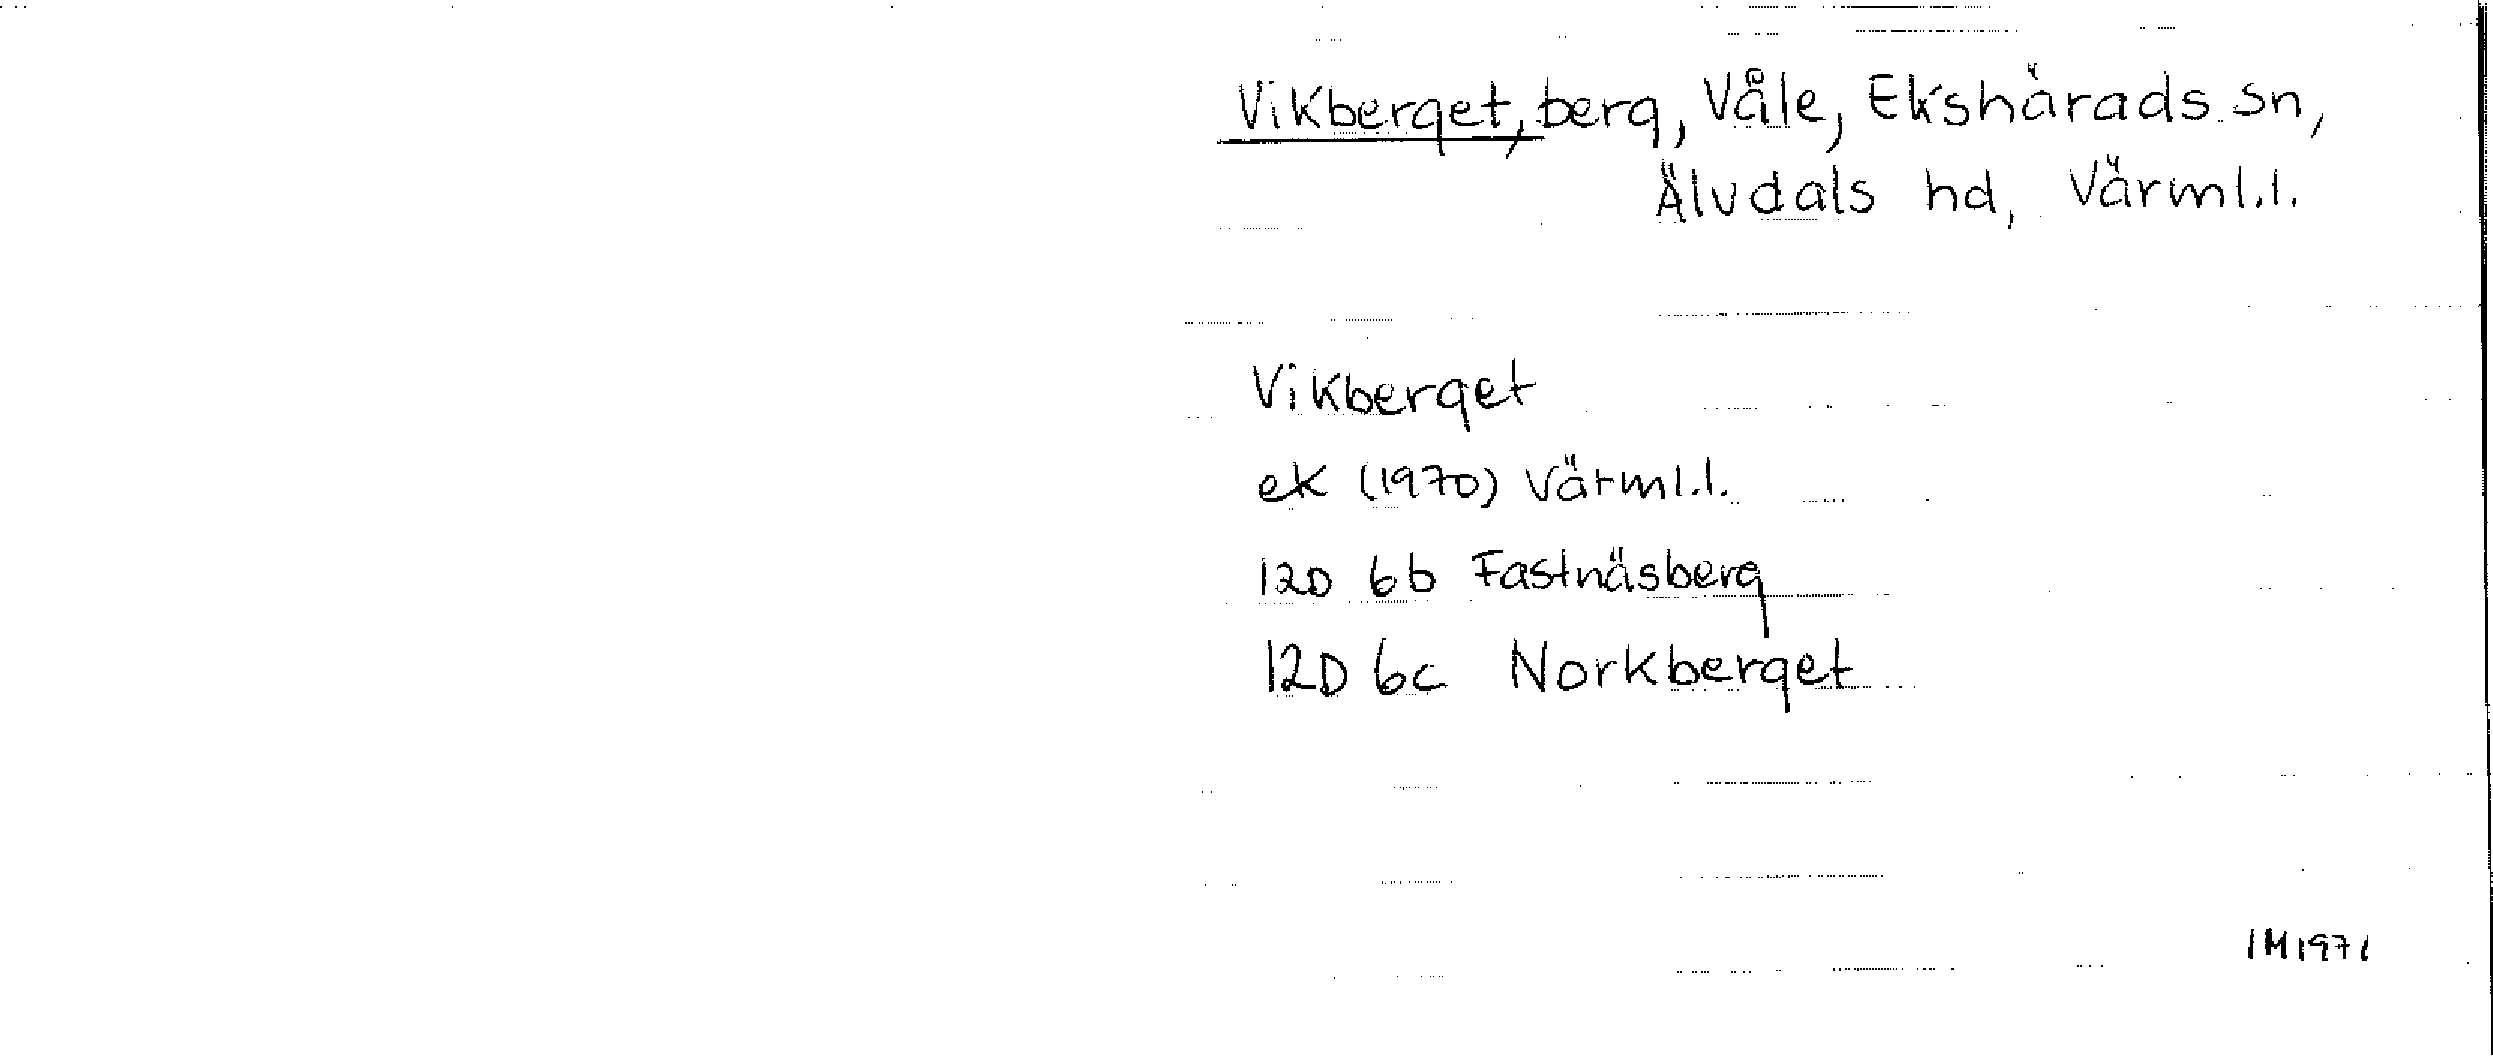 Vikberget, berg, Våle, Ekshärads sn,
Älvdals hd, Värml.l.
Vikberget
ek (1970) Värml.l.
12D 6b Fastnäsberg
12D 6c Norkberget
IM 1971